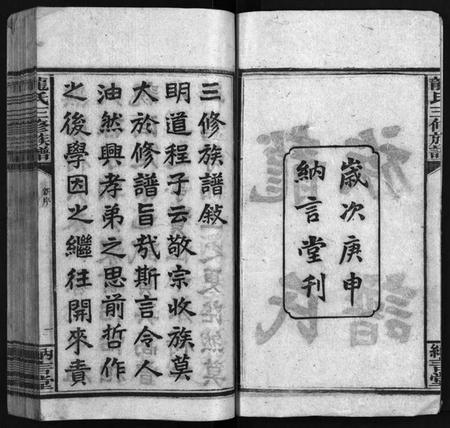 龍氏三修族譜
歲次庚申
納言堂刊
納言堂
三修族譜敍
明道程子云敬宗收族莫
大於修譜旨哉斯言令人
油然興孝弟之思前哲作
之後學因之繼往開來責
龍氏三修族譜
序
一
納言堂